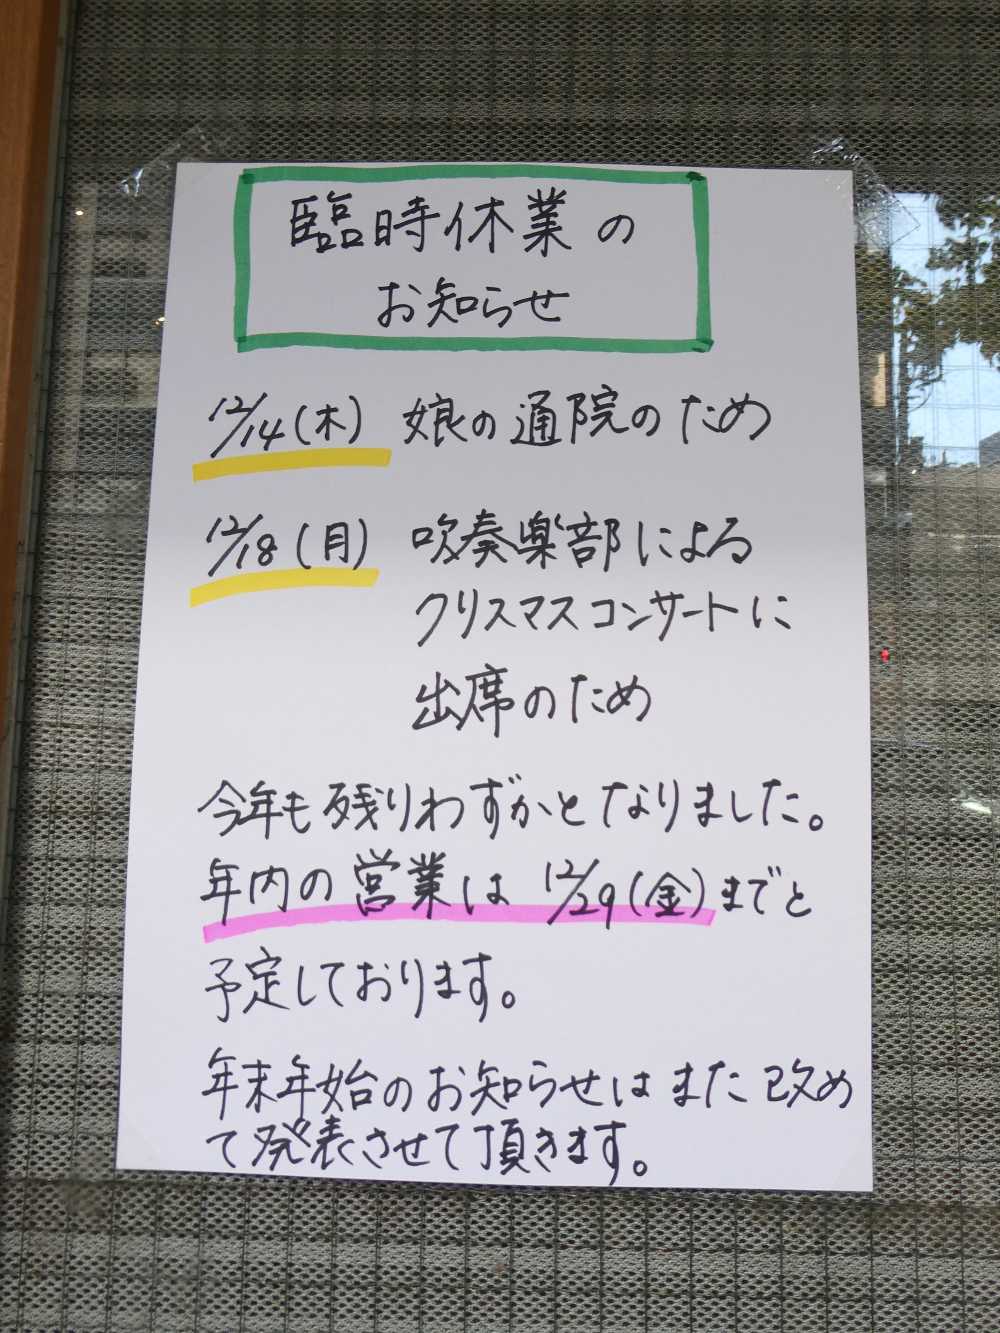 臨時休業の
お知らせ
12/14(木) 娘の通院のため
12/18(月) 吹奏楽部による
クリスマスコンサートに
出席のため
今年も残りわずかとなりました。
年内の営業は 12/29(金)までと
予定しております。
年末年始のお知らせはまた改め
て発表させて頂きます。